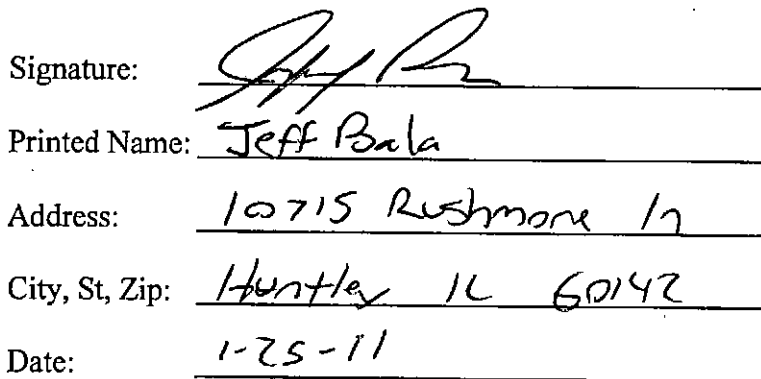 Signature:
Printed Name: Jeff Bala
Address: 10715 Rushmore ln
City, St, Zip: Huntley IL 60142
Date: 1-25-11